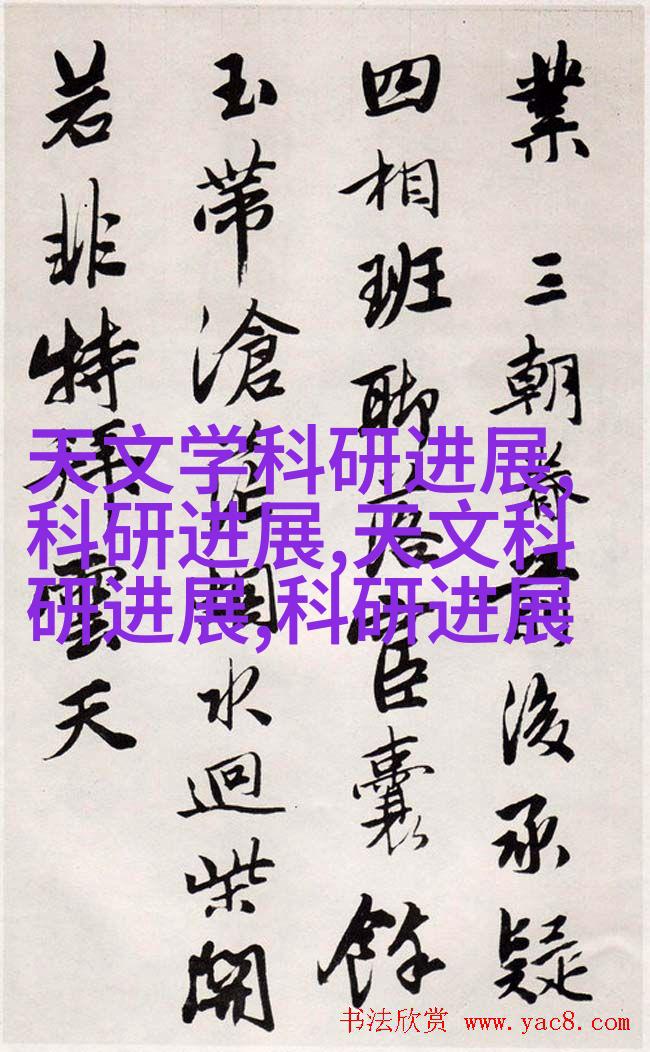 業 三朝後承疑
四相班聊落宦臣囊餘
玉帶滄水迴柴開
若非特拜雲天
天文学科研进展,
科研进展,天文科
研进展,科研进展
书法欣赏 www.yac8.com